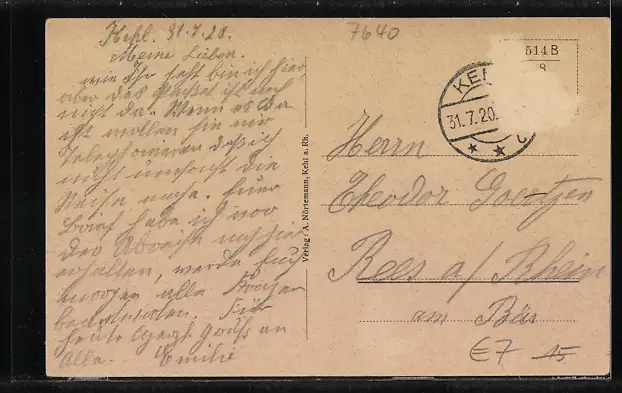 Kehl. 31.7.20.
Meine Lieben.
wie Ihr seht bin ich hier,
aber das Paket ist noch
nicht da. Wenn es da
ist wollen sie mir
telephonieren daß ich
nicht umsonst die
Reise mache. Euer
Brief habe ich vor
der Abreise noch hier
erhalten, werde Euch
morgen alle Fragen
beantworten. Für
heute herzl. Grüße an
Alle. Emilie
7640
514 B
8
KEHL
31.7.20.
Verlag: A. Nörtemann, Kehl a. Rh.
Herrn
Theodor Goertzen
Rees a/ Rhein
am Bär
€7 45